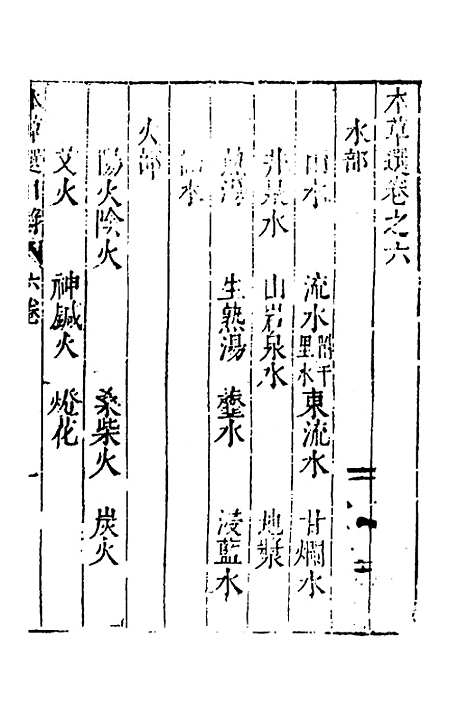 本草選卷之六
水部
雨水 流水附千里水 東流水 甘爛水
井泉水 山岩泉水 地漿
熱湯 生熟湯 虀水 浸藍水
水
火部
陽火陰火 桑柴火 炭火
艾火 神鍼火 燈花
本草選 六卷 一